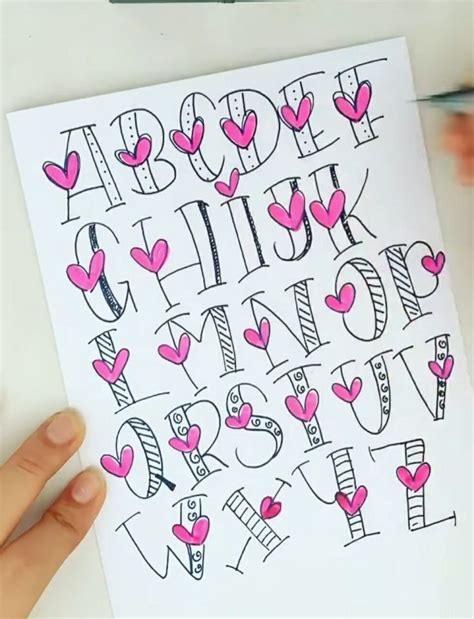 ABCDEF
GHIJK
LMNOP
QRSTUV
WXYZ